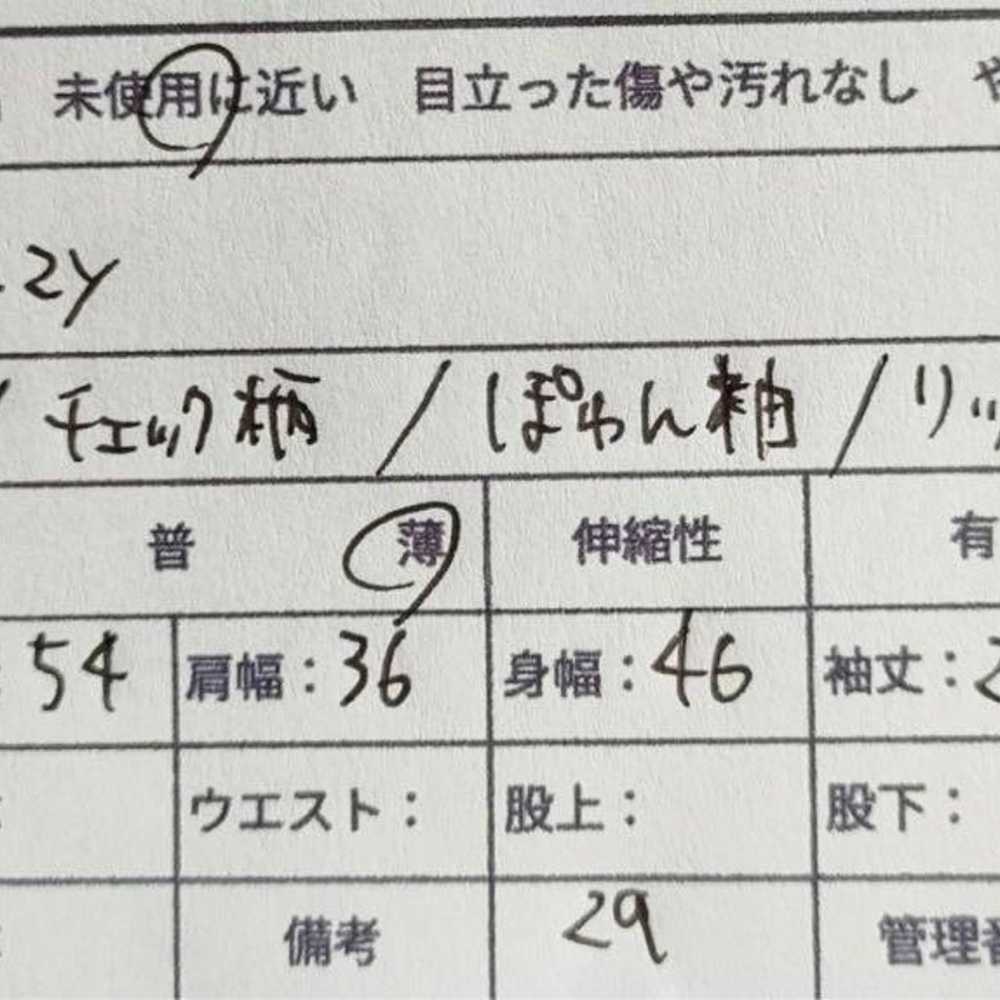 未使用に近い 目立った傷や汚れなし
2y
チェック柄 / ぽわん袖 / リッ
普 薄 伸縮性 有
54 肩幅：36 身幅：46 袖丈：2
ウエスト： 股上： 股下：
備考 29 管理